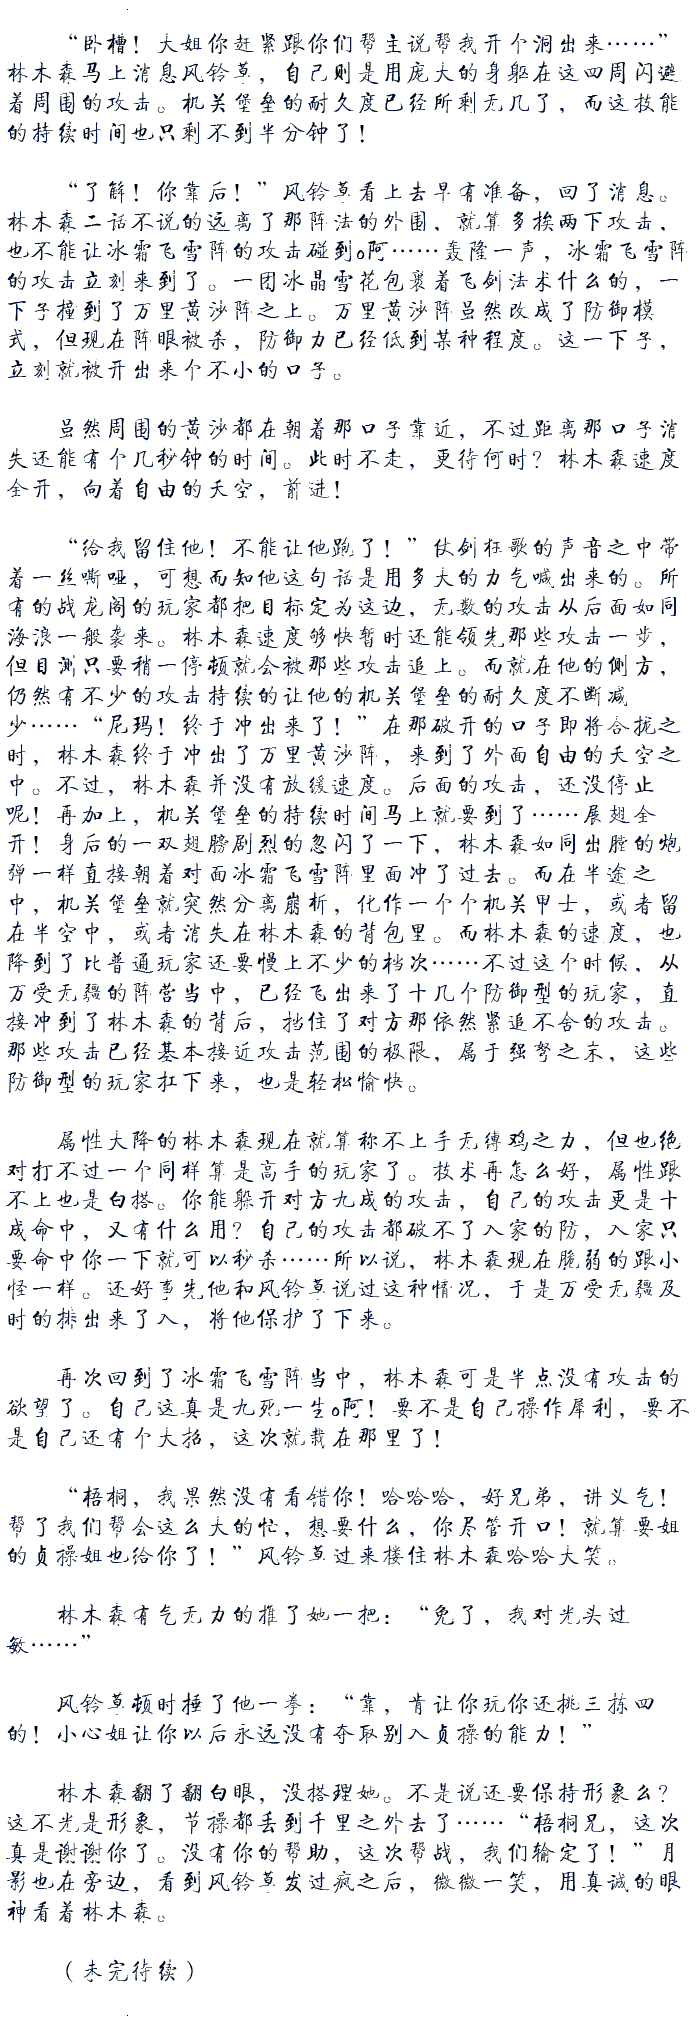 “卧槽！大姐你赶紧跟你们帮主说帮我开个洞出来……”
林木森马上消息风铃草，自己则是用庞大的身躯在这四周闪避
着周围的攻击。机关堡垒的耐久度已经所剩无几了，而这技能
的持续时间也只剩不到半分钟了！
“了解！你靠后！”风铃草看上去早有准备，回了消息。
林木森二话不说的远离了那阵法的外围，就算多挨两下攻击，
也不能让冰霜飞雪阵的攻击碰到o阿……轰隆一声，冰霜飞雪阵
的攻击立刻来到了。一团冰晶雪花包裹着飞剑法术什么的，一
下子撞到了万里黄沙阵之上。万里黄沙阵虽然改成了防御模
式，但现在阵眼被杀，防御力已经低到某种程度。这一下子，
立刻就被开出来个不小的口子。
虽然周围的黄沙都在朝着那口子靠近，不过距离那口子消
失还能有个几秒钟的时间。此时不走，更待何时？林木森速度
全开，向着自由的天空，前进！
“给我留住他！不能让他跑了！”仗剑狂歌的声音之中带
着一丝嘶哑，可想而知他这句话是用多大的力气喊出来的。所
有的战龙阁的玩家都把目标定为这边，无数的攻击从后面如同
海浪一般袭来。林木森速度够快暂时还能领先那些攻击一步，
但目测只要稍一停顿就会被那些攻击追上。而就在他的侧方，
仍然有不少的攻击持续的让他的机关堡垒的耐久度不断减
少……“尼玛！终于冲出来了！”在那破开的口子即将合拢之
时，林木森终于冲出了万里黄沙阵，来到了外面自由的天空之
中。不过，林木森并没有放缓速度。后面的攻击，还没停止
呢！再加上，机关堡垒的持续时间马上就要到了……展翅全
开！身后的一双翅膀剧烈的忽闪了一下，林木森如同出膛的炮
弹一样直接朝着对面冰霜飞雪阵里面冲了过去。而在半途之
中，机关堡垒就突然分离崩析，化作一个个机关甲士，或者留
在半空中，或者消失在林木森的背包里。而林木森的速度，也
降到了比普通玩家还要慢上不少的档次……不过这个时候，从
万受无疆的阵营当中，已经飞出来了十几个防御型的玩家，直
接冲到了林木森的背后，挡住了对方那依然紧追不舍的攻击。
那些攻击已经基本接近攻击范围的极限，属于强弩之末，这些
防御型的玩家扛下来，也是轻松愉快。
属性大降的林木森现在就算称不上手无缚鸡之力，但也绝
对打不过一个同样算是高手的玩家了。技术再怎么好，属性跟
不上也是白搭。你能躲开对方九成的攻击，自己的攻击更是十
成命中，又有什么用？自己的攻击都破不了入家的防，入家只
要命中你一下就可以秒杀……所以说，林木森现在脆弱的跟小
怪一样。还好事先他和风铃草说过这种情况，于是万受无疆及
时的排出来了入，将他保护了下来。
再次回到了冰霜飞雪阵当中，林木森可是半点没有攻击的
欲望了。自己这真是九死一生o阿！要不是自己操作犀利，要不
是自己还有个大招，这次就栽在那里了！
“梧桐，我果然没有看错你！哈哈哈，好兄弟，讲义气！
帮了我们帮会这么大的忙，想要什么，你尽管开口！就算要姐
的贞操姐也给你了！”风铃草过来搂住林木森哈哈大笑。
林木森有气无力的推了她一把：“免了，我对光头过
敏……”
风铃草顿时捶了他一拳：“靠，肯让你玩你还挑三拣四
的！小心姐让你以后永远没有夺取别入贞操的能力！”
林木森翻了翻白眼，没搭理她。不是说还要保持形象么？
这不光是形象，节操都丢到千里之外去了……“梧桐兄，这次
真是谢谢你了。没有你的帮助，这次帮战，我们输定了！”月
影也在旁边，看到风铃草发过疯之后，微微一笑，用真诚的眼
神看着林木森。
（未完待续）